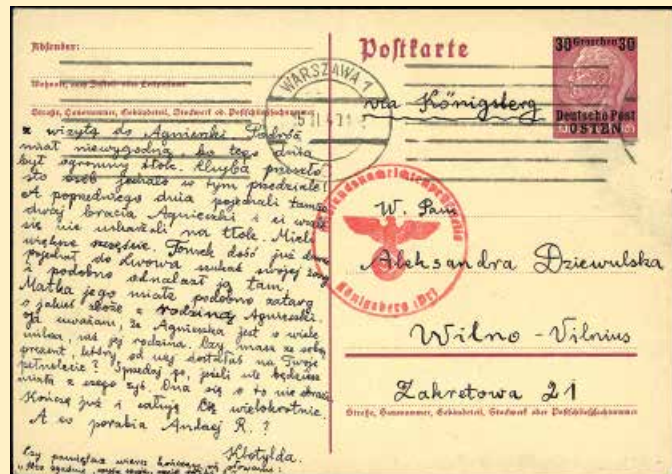 Absender:
Postkarte
30 Groschen 30
Deutsche Post
OSTEN
WARSZAWA 1
via Königsberg
Wohnort, auch Zustell- oder Leitpostamt
Straße, Hausnummer, Gebäudeteil, Stockwerk od. Postschließfachnummer
z wizytą do Agnieszki. Podróż
miał niewygodną, bo tego dnia
był ogromny tłok. Chyba przeszło
sto osób jechało w tym przedziale!
A poprzedniego dnia pojechali tam
dwaj bracia Agnieszki i ci wcale
się nie uskarżali na tłok. Mieli
większe szczęście. Tomek dość już dawno
pojechał do Lwowa szukać swojej żony
i podobno odnalazł ją tam.
Matka jego miała podobno zatarg
o jakieś zboże z rodziną Agnieszki.
Ja uważam, że Agnieszka jest o wiele
milsza, niż jej rodzina. Czy masz ze sobą
prezent, który od niej dostałaś na Twoje
? Sprzedaj go, jeżeli nie będziesz
miała z czego żyć. Ona się o to nie obrazi.
Kończę już i całuję Cię wielokrotnie.
A co porabia Andrzej R.?
Klotylda.
Czy pamiętasz wiersz kończący się słowami:
W. Pani
Aleksandra Dziewulska
Wilno - Vilnius
Zakretowa 21
Straße, Hausnummer, Gebäudeteil, Stockwerk oder Postschließfachnummer
Auslandsnachrichtenprüfstelle
Königsberg (Pr)